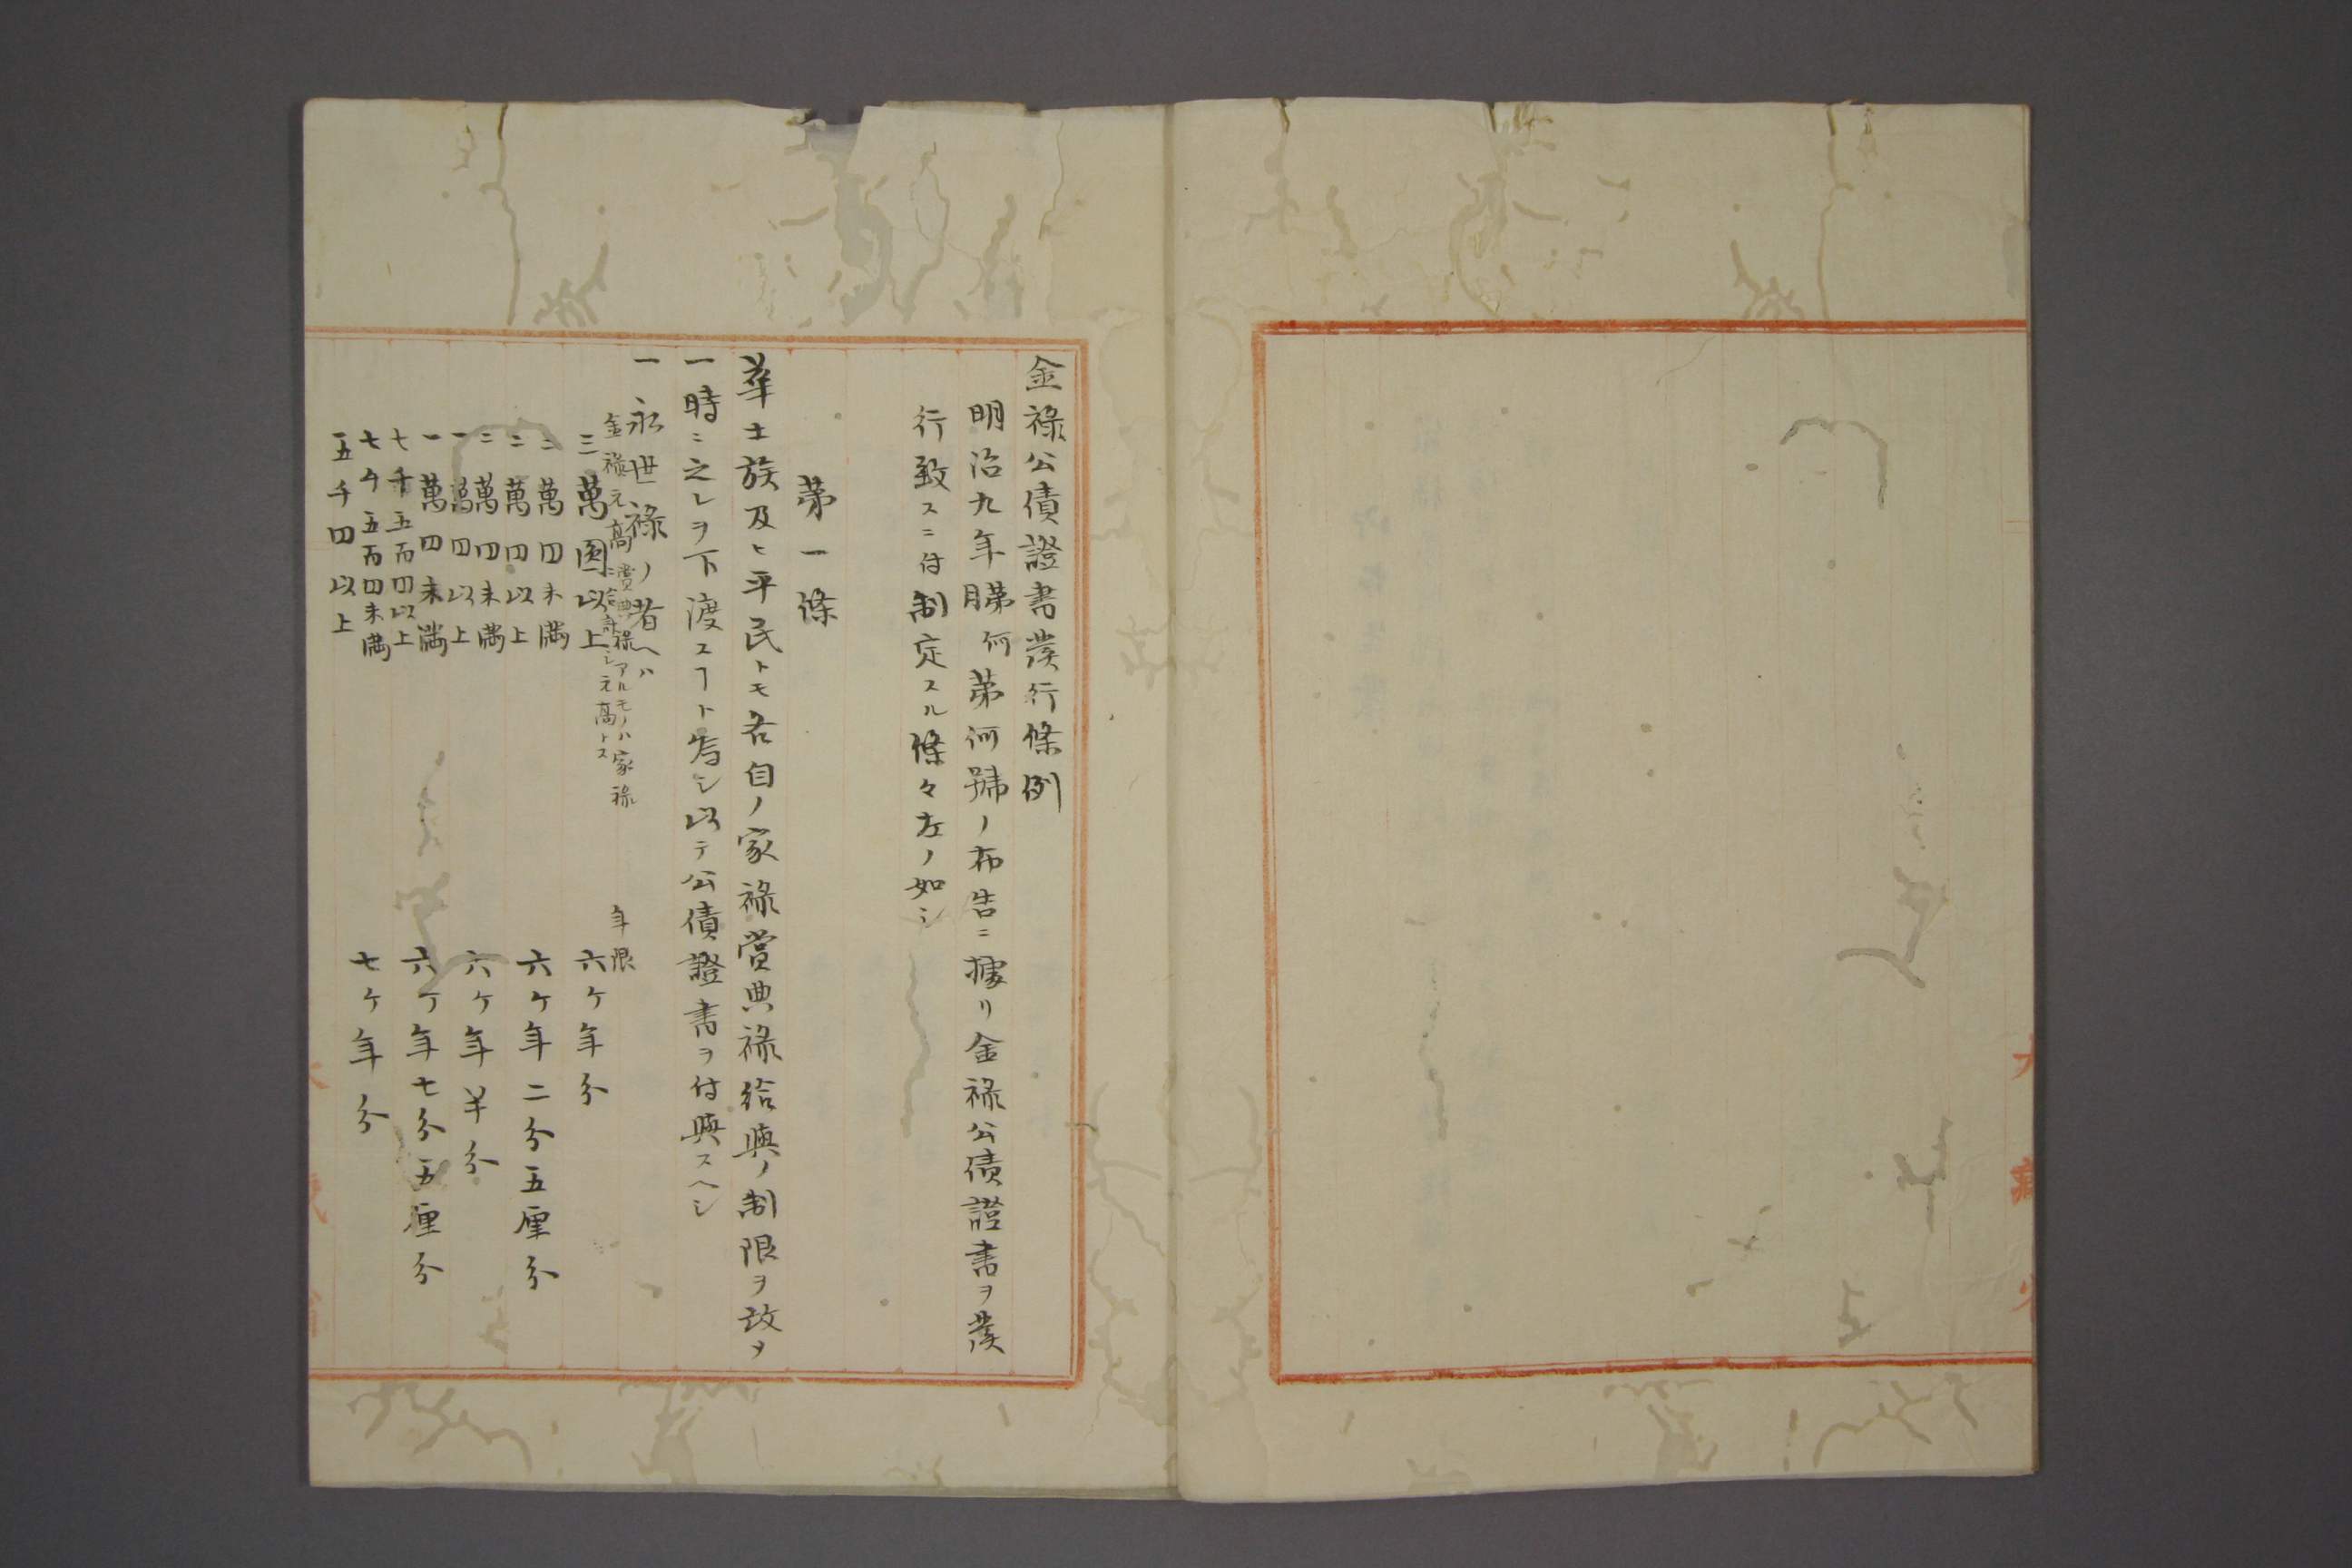 金禄公債證書發行條例
明治九年月第何第何號ノ布告ニ據リ金禄公債證書ヲ發
行致スニ付制定スル條々左ノ如シ
第一條
華士族及ヒ平民トモ各自ノ家禄賞典禄給與ノ制限ヲ改メ
一時ニ之レヲ下渡スヿト為シ以テ公債證書ヲ付與スヘシ
一永世禄ノ者ヘハ
金禄元高 賞典禄アルモノハ家禄
ニ合計シ元高トス 年限
三萬圓以上 六ケ年分
三萬円未満
二萬円以上 六ケ年二分五厘分
二萬円未満
一萬円以上 六ケ年半分
一萬円未満
七千五百円以上 六ケ年七分五厘分
七千五百円未満
五千円以上 七ケ年分